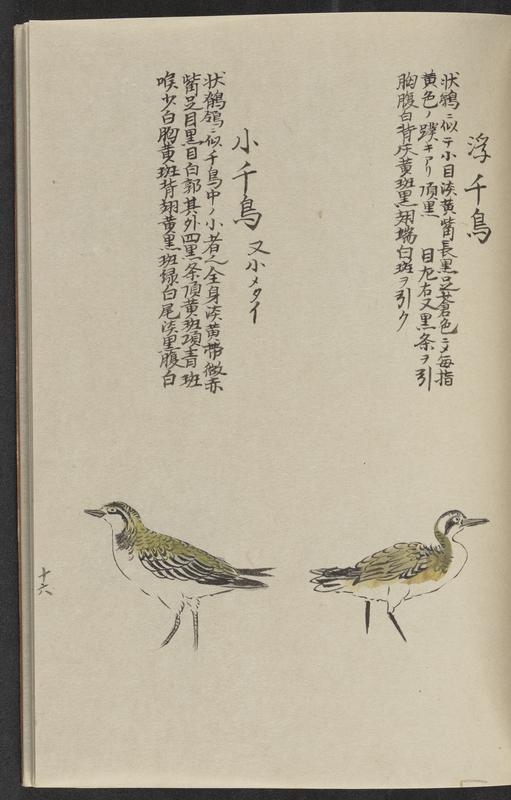 浮千鳥
状鴉ニ似テ小目淡黄觜長黒足蒼色ニ〆毎指
黄色ノ蹼キアリ頂黒 目左右又黒条ヲ引
胸腹白背灰黄斑黒翅端白斑ヲ引ク
小千鳥 又小メタイ
状鶺鴒ニ似千鳥中ノ小者也全身淡黄帯微赤
觜足目黒目白郭其外四黒条頂黄斑項青斑
喉少白胸黄斑背翅黄黒斑緑白尾淡黒腹白
十六